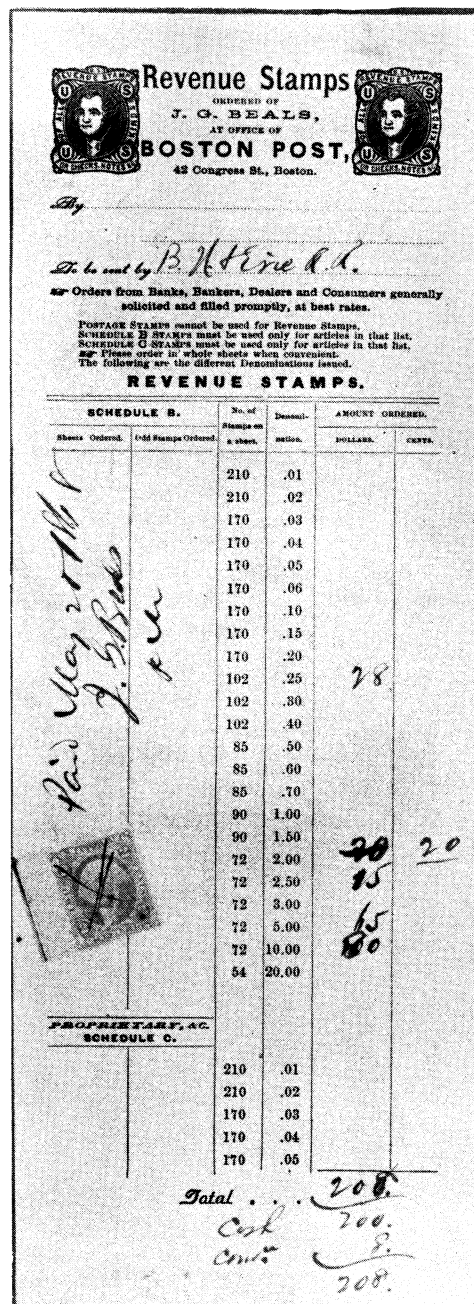 Revenue Stamps
ORDERED OF
J. G. BEALS,
AT OFFICE OF
BOSTON POST,
42 Congress St., Boston.
By
To be sent by B. H & Erie R. R.
Orders from Banks, Bankers, Dealers and Consumers generally
solicited and filled promptly, at best rates.
POSTAGE STAMPS cannot be used for Revenue Stamps,
SCHEDULE B STAMPS must be used only for articles in that list,
SCHEDULE C STAMPS must be used only for articles in that list,
Please order in whole sheets when convenient.
The following are the different Denominations issued.
REVENUE STAMPS.
SCHEDULE B. No. of Stamps on a sheet. Denomination. AMOUNT ORDERED.
Sheets Ordered. Odd Stamps Ordered. DOLLARS. CENTS.
210 .01
210 .02
170 .03
170 .04
170 .05
170 .06
170 .10
170 .15
170 .20
102 .25 28
102 .30
102 .40
85 .50
85 .60
85 .70
90 1.00
90 1.50
72 2.00 20 20
72 2.50 15
72 3.00
72 5.00 15
72 10.00
54 20.00
Paid May 25
J. G. Beals
PROPRIETARY, &C.
SCHEDULE C.
210 .01
210 .02
170 .03
170 .04
170 .05
Total . . . 208.
Cash 200.
8.
208.